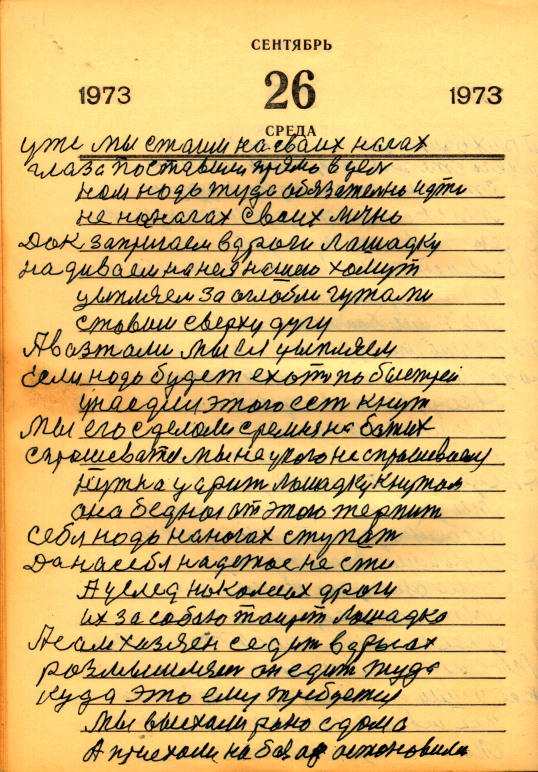 СЕНТЯБРЬ
1973 26 1973
СРЕДА
уже мы стаим на сваих нагах
глаза поставили прямо в цел
нам нодь туда обязателно идти
не нанагах своих лично
Дак запригаем вдроги лашадку
надиваем на нея нашою хамут
цыпляем за оглобли гужами
ставим сверху дугу
А возжали мы ея цыпляем
Если нодь будет ехоть по быстрей
унас для этого ест кнут
Мы его сделоли сремня на
спрошевать мы не укого неспрошеваем
Нужна ударит лошадку кнутом
она бедноя от этого терпит
себя нодь нанагах ступат
Да насебя надежое не сти
А услед на колесах дроги
их за собою тащит лошадка
А сам хазяен седит вдрогах
розмышляет он едит туда
куда это ему требоется
Мы выехали рано сдома
А приехоли на базар остоновили